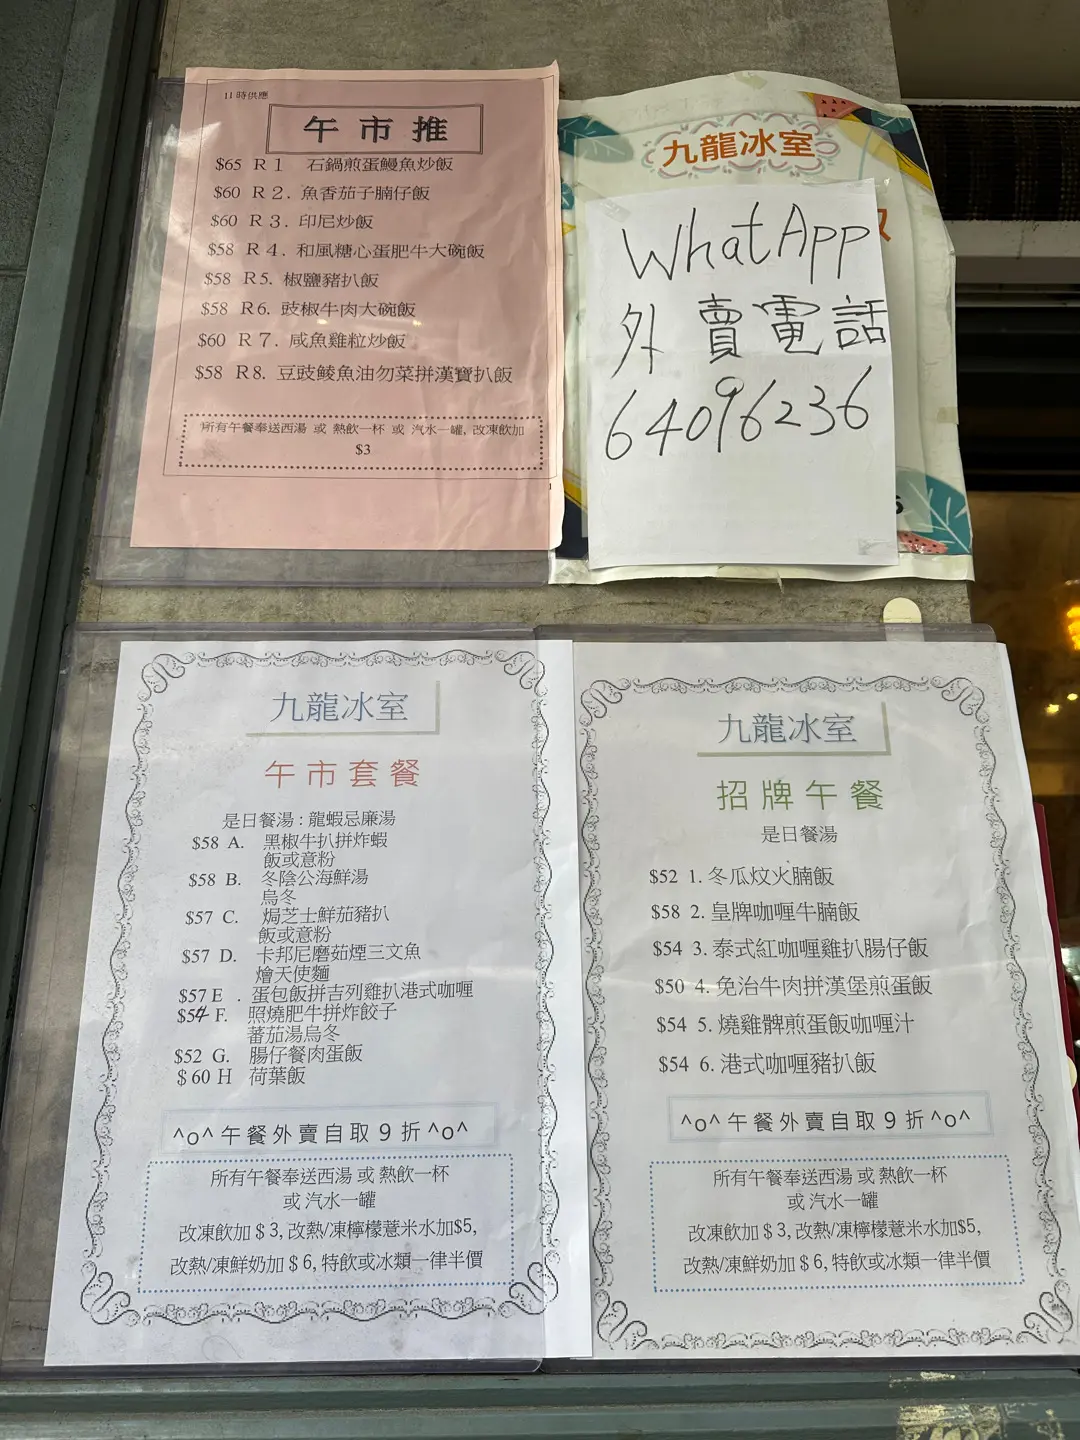 11時供應
午市推
$65 R 1 石鍋煎蛋鰻魚炒飯
$60 R 2. 魚香茄子腩仔飯
$60 R 3. 印尼炒飯
$58 R 4. 和風糖心蛋肥牛大碗飯
$58 R5. 椒鹽豬扒飯
$58 R6. 豉椒牛肉大碗飯
$60 R 7. 咸魚雞粒炒飯
$58 R8. 豆豉鯪魚油勿菜拼漢寶扒飯
所有午餐奉送西湯 或 熱飲一杯 或 汽水一罐, 改凍飲加
$3
九龍冰室
WhatApp
外賣電話
64096236
九龍冰室
午市套餐
是日餐湯 : 龍蝦忌廉湯
$58 A. 黑椒牛扒拼炸蝦
飯或意粉
$58 B. 冬陰公海鮮湯
烏冬
$57 C. 焗芝士鮮茄豬扒
飯或意粉
$57 D. 卡邦尼磨茹煙三文魚
燴天使麵
$57 E . 蛋包飯拼吉列雞扒港式咖喱
$54 F. 照燒肥牛拼炸餃子
蕃茄湯烏冬
$52 G. 腸仔餐肉蛋飯
$ 60 H 荷葉飯
^o^ 午餐外賣自取 9 折 ^o^
所有午餐奉送西湯 或 熱飲一杯
或 汽水一罐
改凍飲加 $ 3, 改熱/凍檸檬薏米水加$5,
改熱/凍鮮奶加 $ 6, 特飲或冰類一律半價
九龍冰室
招牌午餐
是日餐湯
$52 1. 冬瓜炆火腩飯
$58 2. 皇牌咖喱牛腩飯
$54 3. 泰式紅咖喱雞扒腸仔飯
$50 4. 免治牛肉拼漢堡煎蛋飯
$54 5. 燒雞髀煎蛋飯咖喱汁
$54 6. 港式咖喱豬扒飯
^o^ 午餐外賣自取 9 折 ^o^
所有午餐奉送西湯 或 熱飲一杯
或 汽水一罐
改凍飲加 $ 3, 改熱/凍檸檬薏米水加$5,
改熱/凍鮮奶加 $ 6, 特飲或冰類一律半價